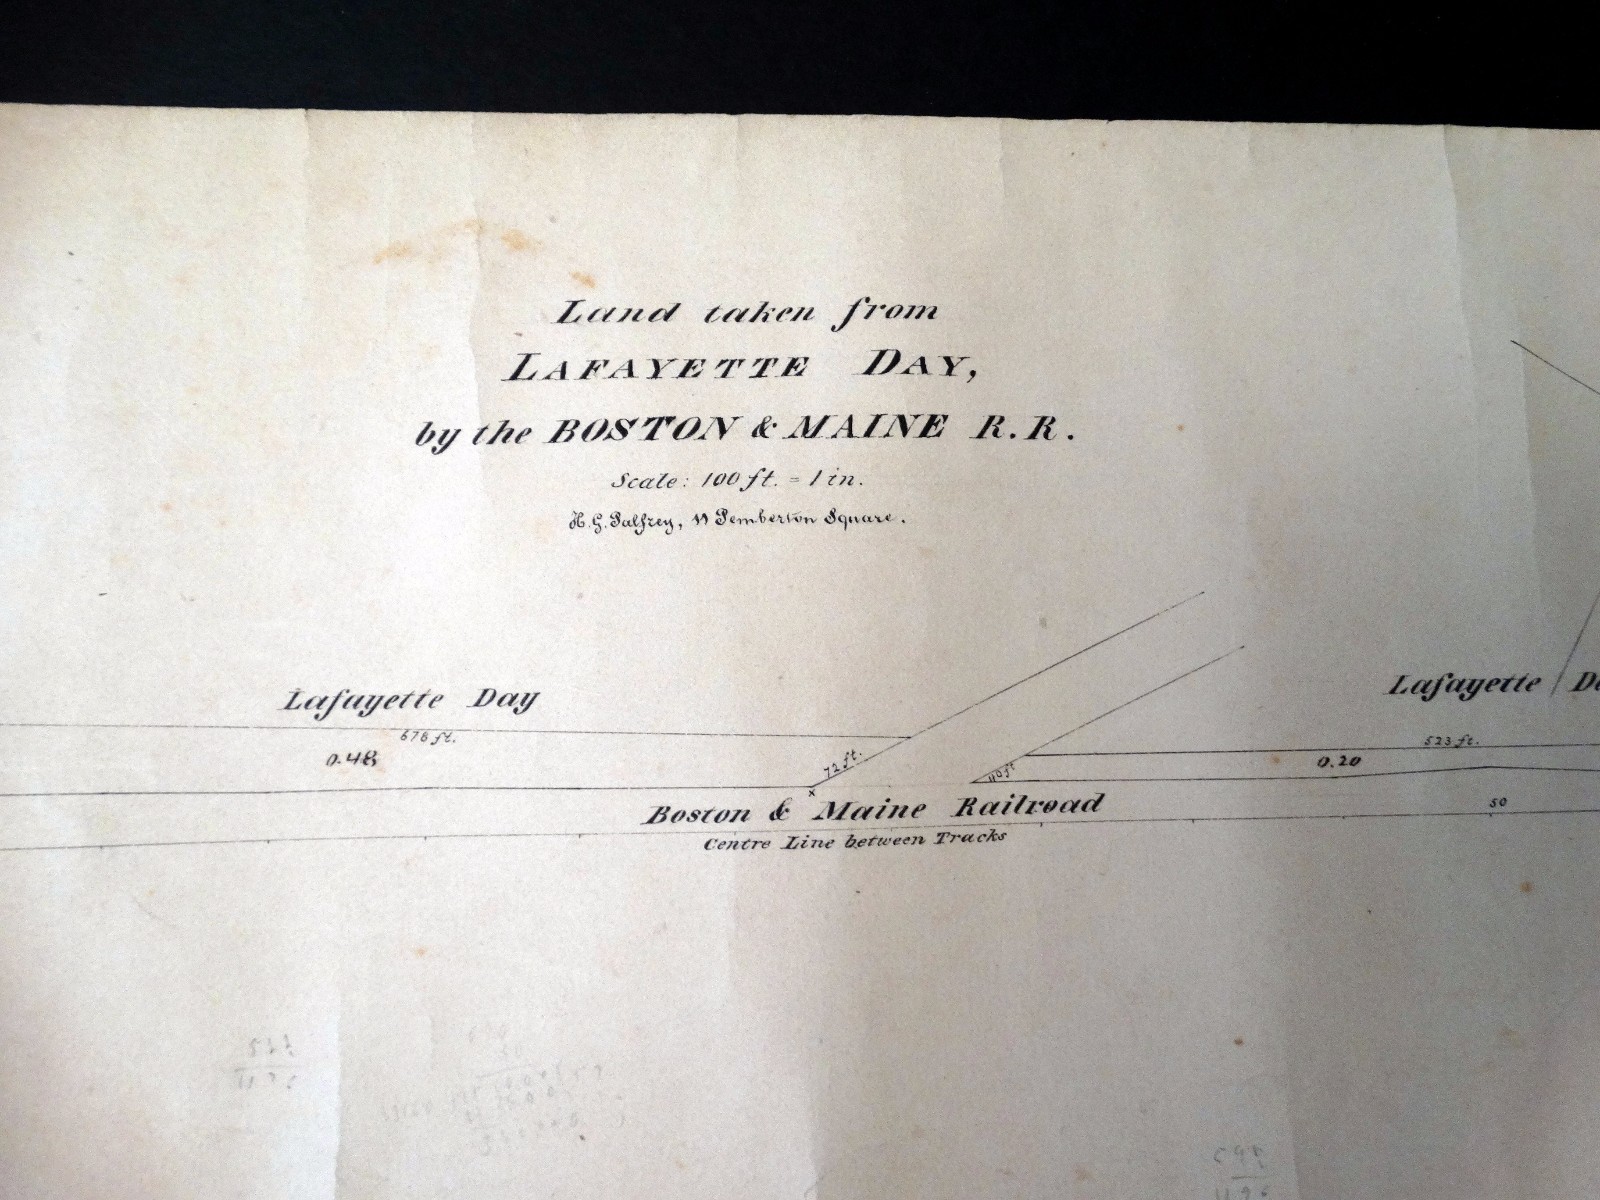 Land taken from
LAFAYETTE DAY,
by the BOSTON & MAINE R.R.
Scale: 100 ft. = 1 in.
H. G. Palfrey, 11 Pemberton Square.
Lafayette Day
678 ft.
0.48
72 ft.
40 ft
Lafayette
523 ft.
0.20
Boston & Maine Railroad
50
Centre Line between Tracks